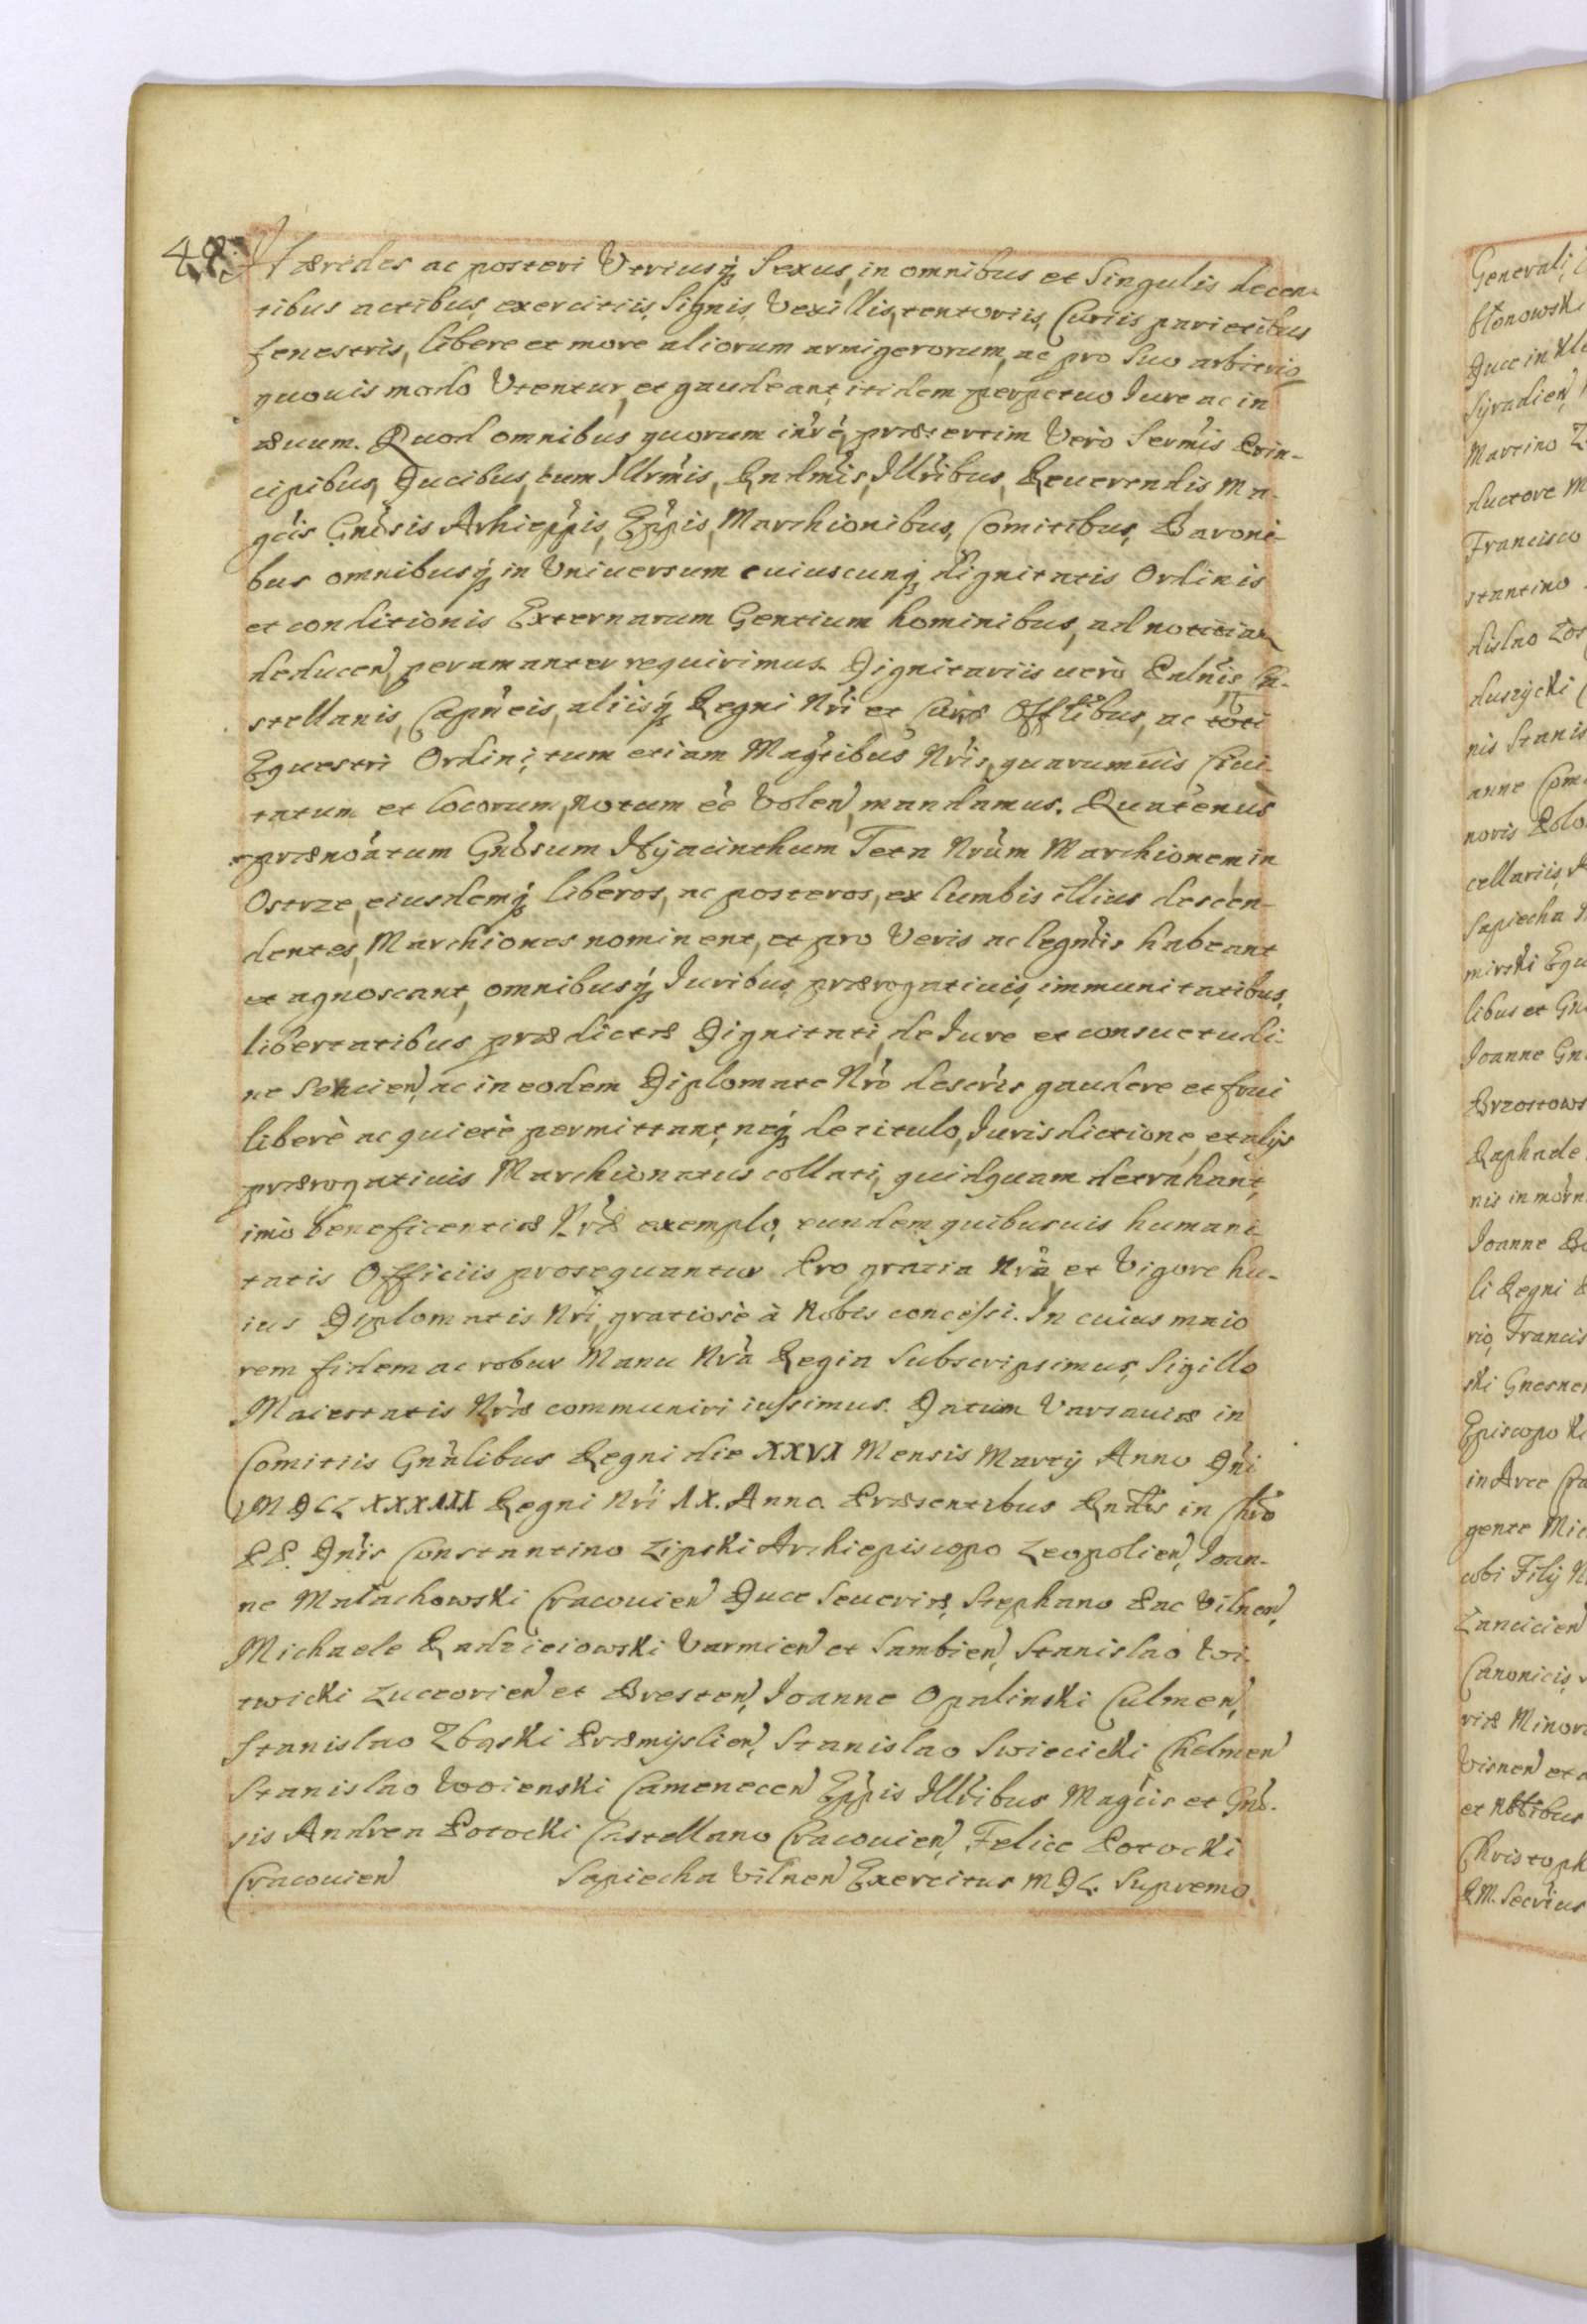 48.
Hæredes ac posteri Vtriusq; Sexus, in omnibus et Singulis decen-
tibus actibus, exercitiis, Signis, Vexillis, tentoriis, Curiis parietibus
fenestris, libere et more aliorum armigerorum, ac pro Suo arbitrio
quouis modo Vtentur, et gaudeant, itidem perpetuo Iure ac in
æuum. Quod omnibus quorum inrẽ, præsertim Verò Sermis Prin-
cipibus, Ducibus, tum Illrmis, Rndmis, Illribus, Reuerendis Ma-
gcis Gnosis Arhieppis, Eppis, Marchionibus, Comitibus, Baroni-
bus omnibusq; in Vniuersum cuiuscunq; dignitatis Ordinis
et conditionis Externarum Gentium hominibus, ad notitiam
deducen, peramanter requirimus. Dignitariis uerò Palnis Ca-
stellanis, Capneis, aliisq; Regni Nri et Curæ Offlibus, ac toti
Equestri Ordini, tum etiam Magtibus Nris, quarumuis Ciui-
tatum et locorum, notum ee Volen, mandamus. Quatenus
prænoatum Gnosum Hyacinthum Teta Nrum Marchionem in
Ostrze, eiusdemq; liberos, ac posteros, ex lumbis illius descen-
dentes, Marchiones nominent, et pro Veris ac legmis habeant
et agnoscant, omnibusq; Iuribus, prærogatiuis, immunitatibus,
libertatibus prædictæ Dignitati, de Iure et consuetudi-
ne Seruien, ac in eodem Diplomate Nro descris gaudere et frui
liberè ac quietè permittant, neq; de titulo, Iurisdictione, et alijs
prærogatiuis Marchionatus collati, quidquam detrahant,
imò beneficentiæ Nræ exemplo, eundem quibusuis humani-
tatis Officiis prosequantur Pro gratia Nra, et Vigore hu-
ius Diplomatis Nri, gratiosè à Nobis concessi. In cuius maio
rem fidem ac robur Manu Nra Regia Subscripsimus, Sigillo
Maiestatis Nræ communiri iussimus. Datum Varsauiæ in
Comitiis Gnalibus Regni die XXVI Mensis Martij Anno Dni
MDCLXXXIII Regni Nri IX. Anno. Præsentibus Rndis in Chro
PP. Dnis Constantino Lipski Archiepiscopo Leopolien, Ioan-
ne Małachowski Cracouien Duce Seueriæ, Stephano Pac Vilnen,
Michaele Radzieiowski Varmien et Sambien, Stanislao Wi-
twicki Luceorien et Bresten, Ioanne Opalinski Culmen,
Stanislao Zbąski Præmyslien, Stanislao Swiecicki Chelmen
Stanislao Woienski Camenecen Eppis Illribus Magcis et Gno-
sis Andrea Potocki Castellano Cracouien, Felice Potocki
Cracouien Sapiecha Vilnen Exercitus MDL. Supremo